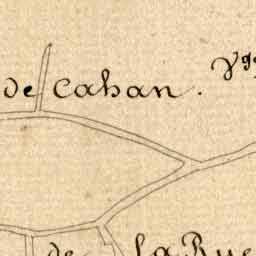 de Cahan.
de la Rue